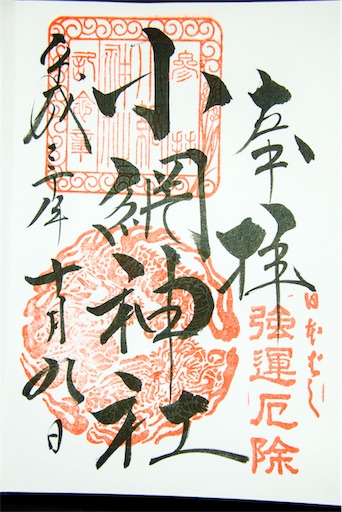 奉拝
日本ばし
強運厄除
小網神社
平成三十年
十月九日